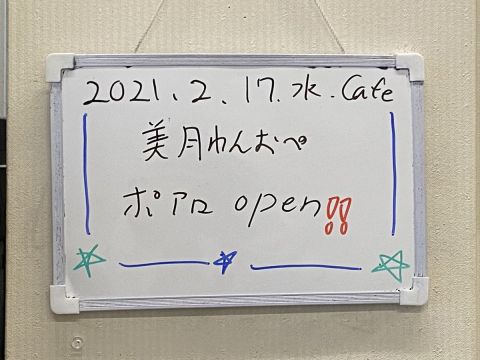 2021.2.17.水.Cafe
美月わんおぺ
ポアロ open!!